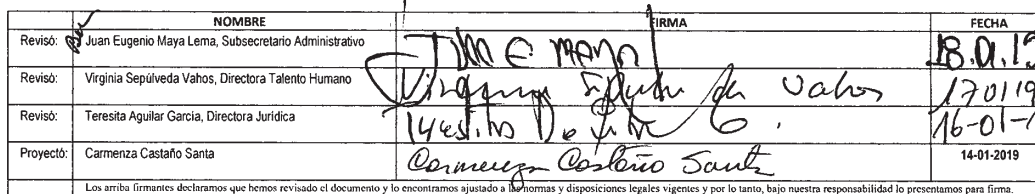 NOMBRE FIRMA FECHA
Revisó: Juan Eugenio Maya Lema, Subsecretario Administrativo 18.01.19
Revisó: Virginia Sepúlveda Vahos, Directora Talento Humano Virginia Sepulveda Vahos 170119
Revisó: Teresita Aguilar Garcia, Directora Jurídica 16-01-1
Proyectó: Carmenza Castaño Santa Carmenza Castaño Santa 14-01-2019
Los arriba firmantes declaramos que hemos revisado el documento y lo encontramos ajustado a las normas y disposiciones legales vigentes y por lo tanto, bajo nuestra responsabilidad lo presentamos para firma.